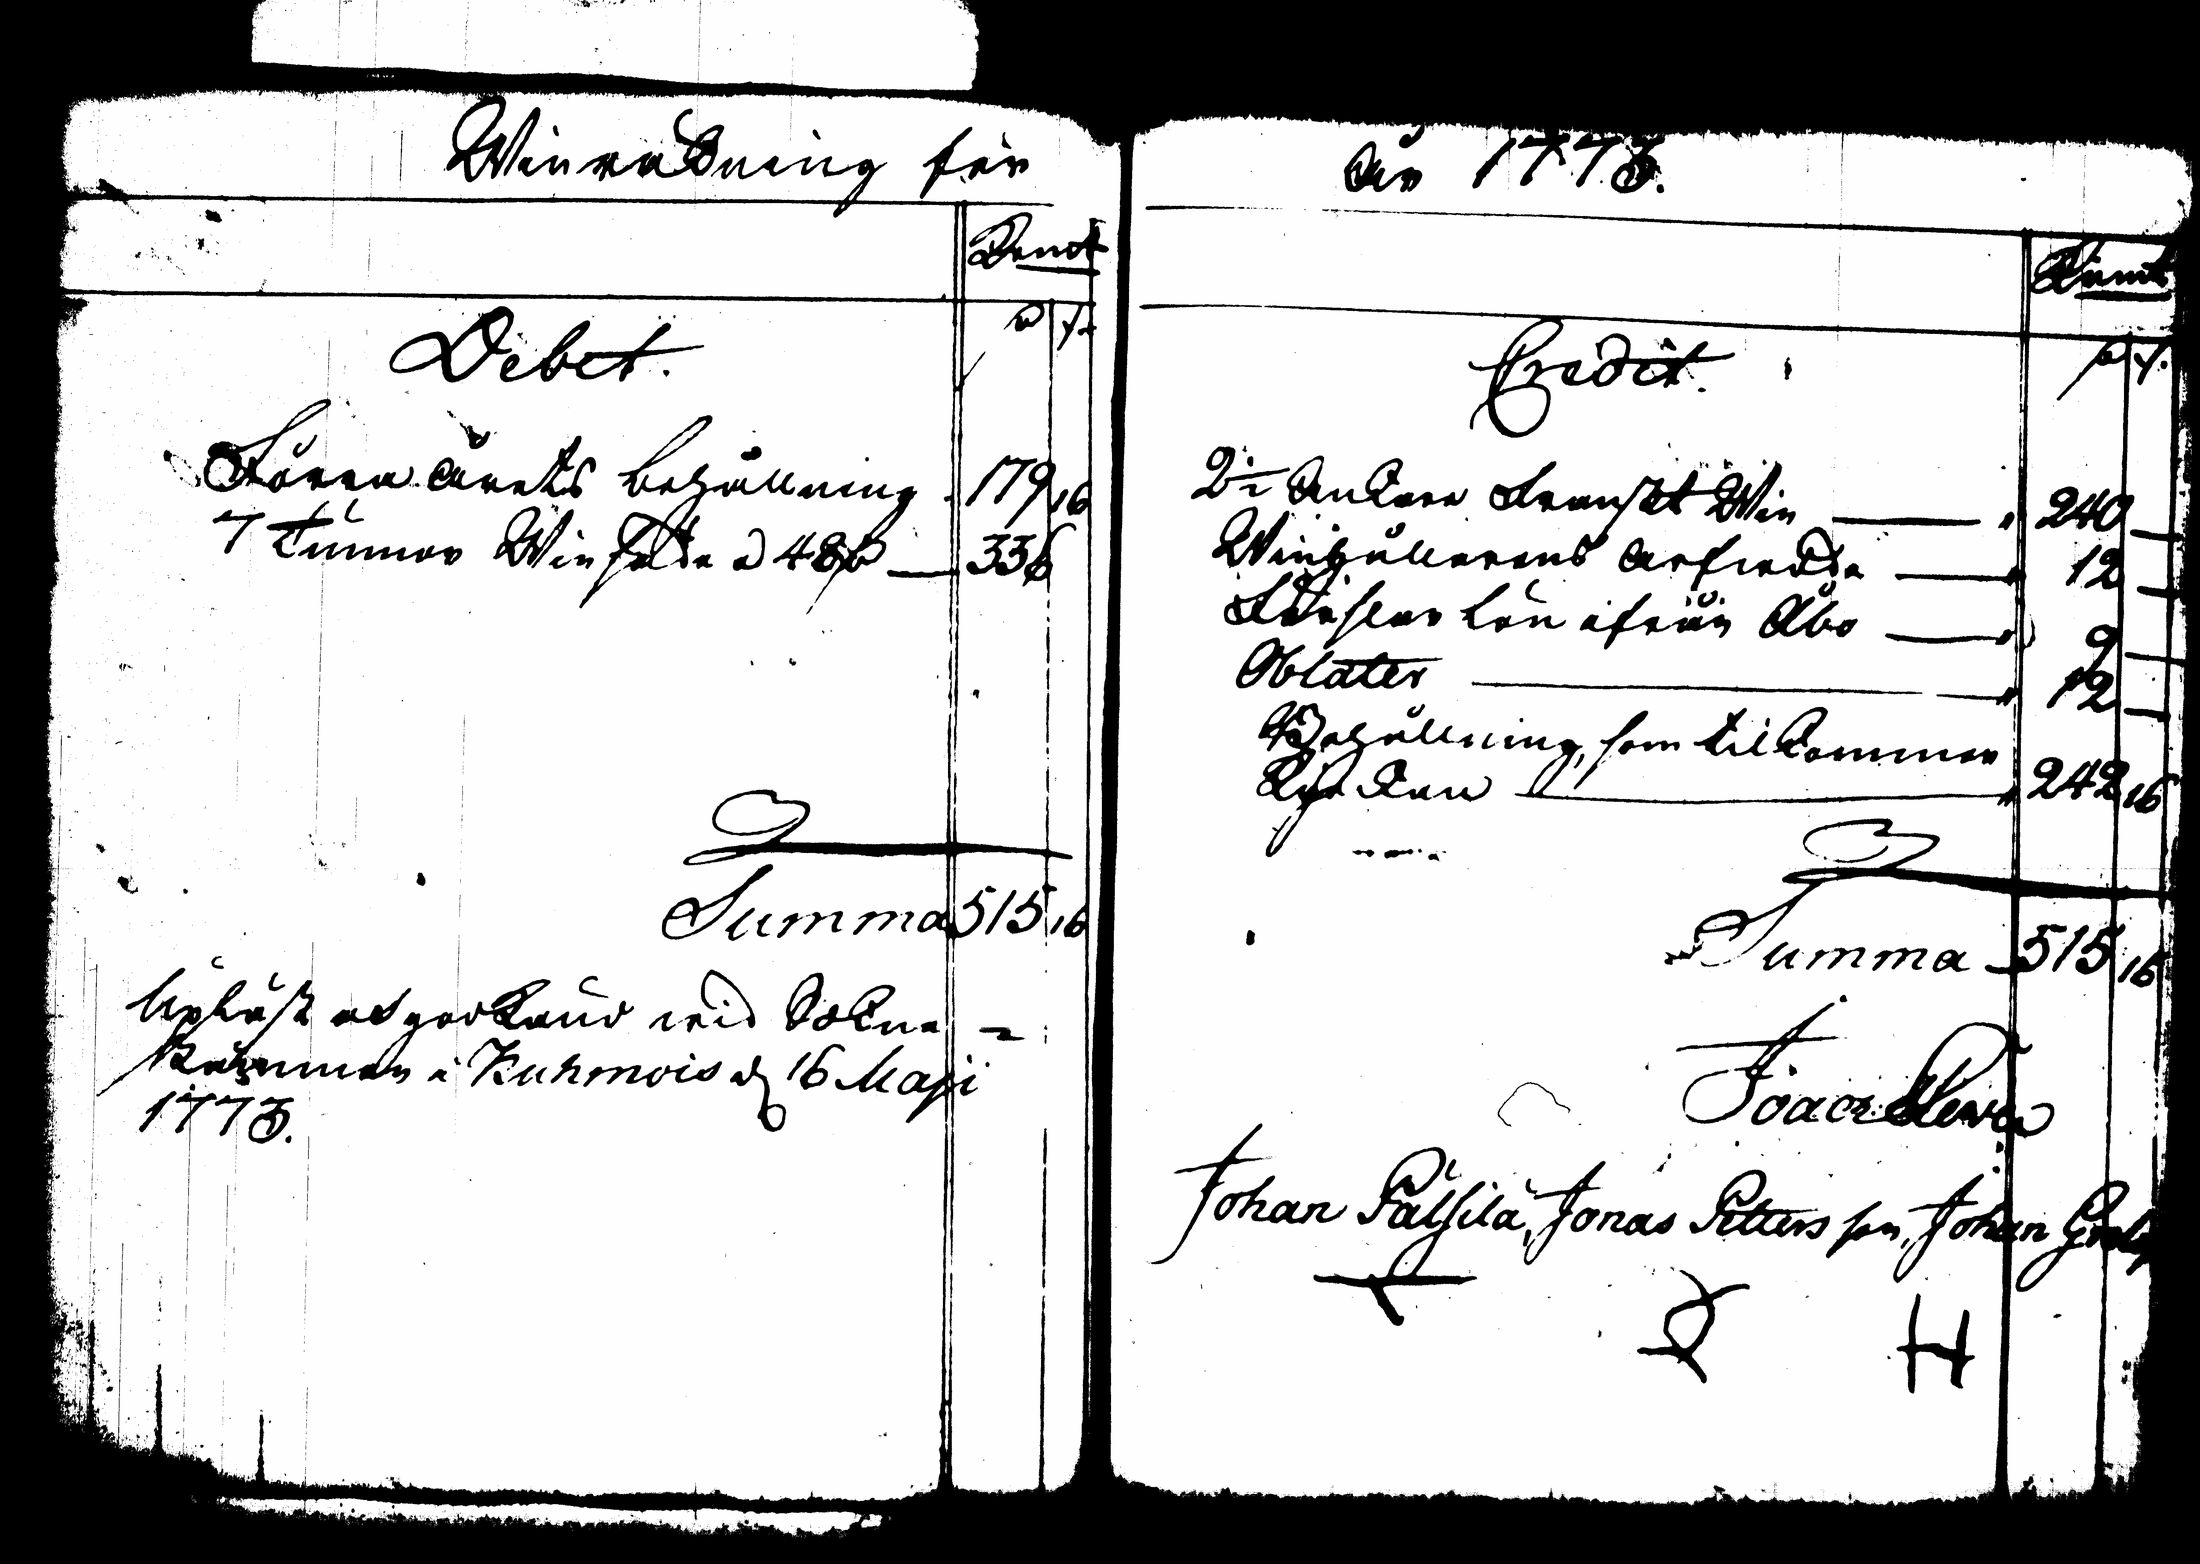 Winräkning för
Kpmt
Debet.
Förra årets behållning 179 16
7 Tunnor Winsäde à 48 336
Summa 515 16
Upläst och godkänd wid Sokne-
stämman i Kuhmois d. 16 Maji
1773.
år 1773.
Kpmt
Credit.
2 Ankare Franskt Win — 240 —
Winhållarens arfwode — 12 —
Forslen ifrån Åbo — 9 —
Oblater — 12 —
Behållning, som tilkommer
Kyrckan — 242 16
Summa 515 16
Johan Pälsilä, Jonas Petters son, Johan
H